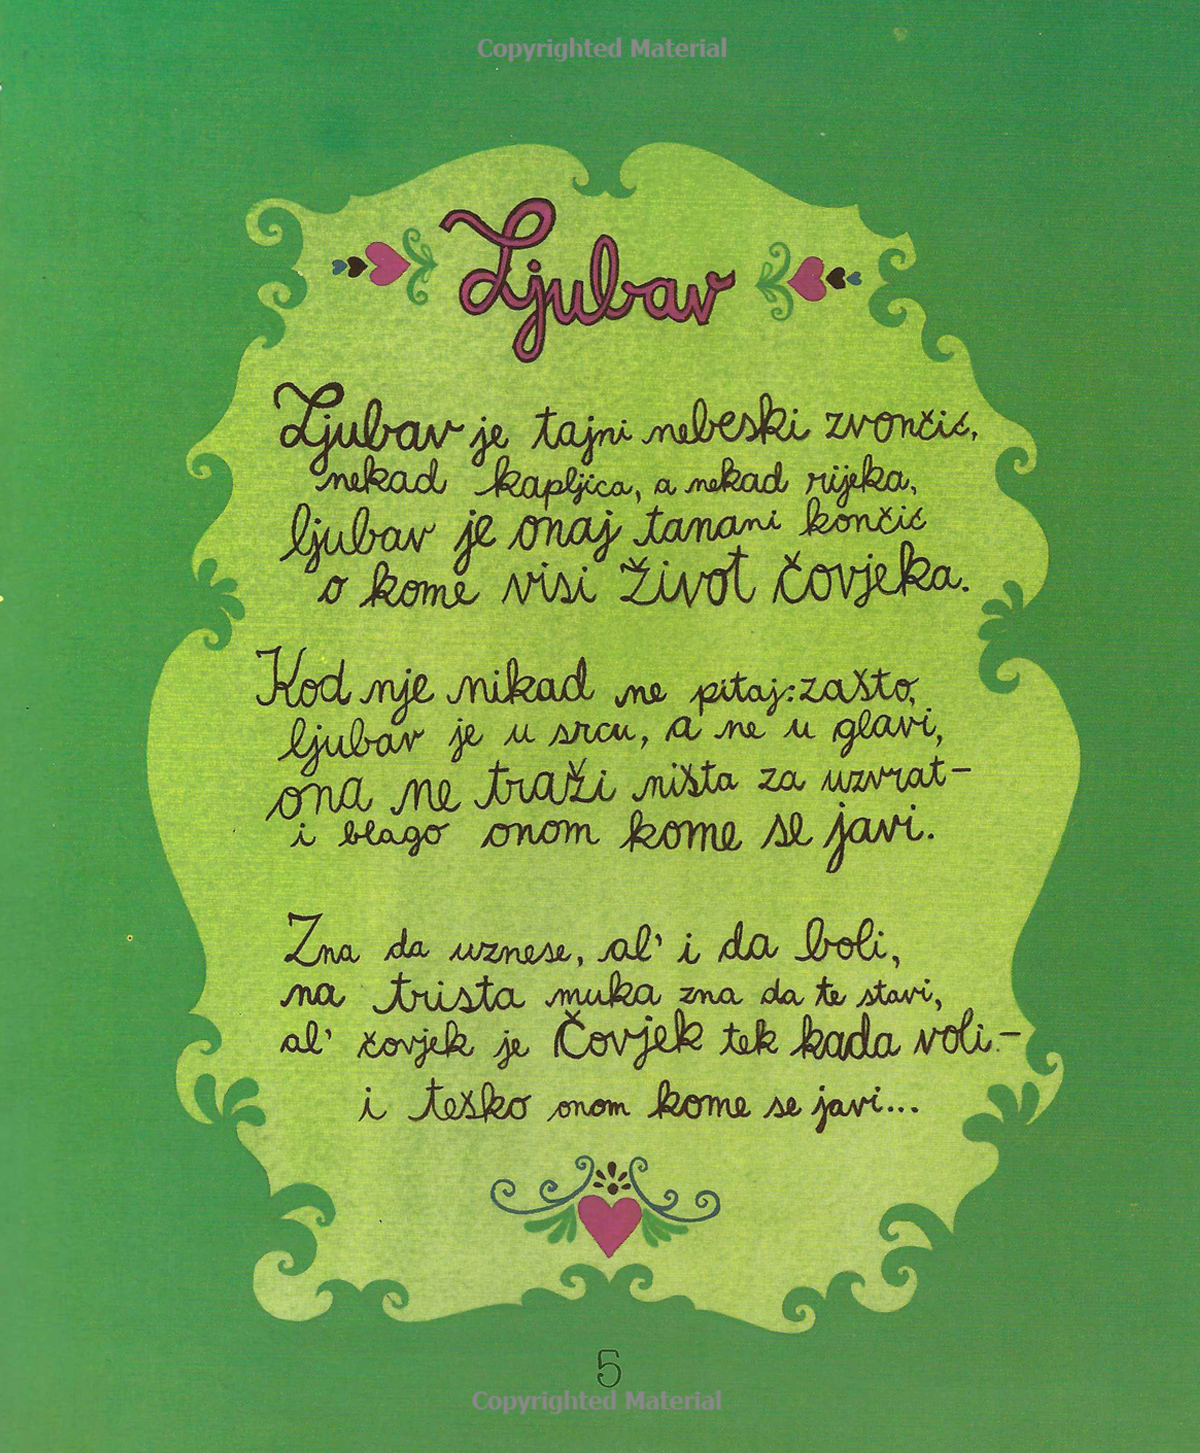 Copyrighted Material
Ljubav
Ljubav je tajni nebeski zvončić,
nekad kapljica, a nekad rijeka,
ljubav je onaj tanani končić
o kome visi život čovjeka.
Kod nje nikad ne pitaj: zašto,
ljubav je u srcu, a ne u glavi,
ona ne traži ništa za uzvrat–
i blago onom kome se javi.
Zna da uznese, al' i da boli,
na trista muka zna da te stavi,
al' čovjek je Čovjek tek kada voli.–
i teško onom kome se javi...
5
Copyrighted Material